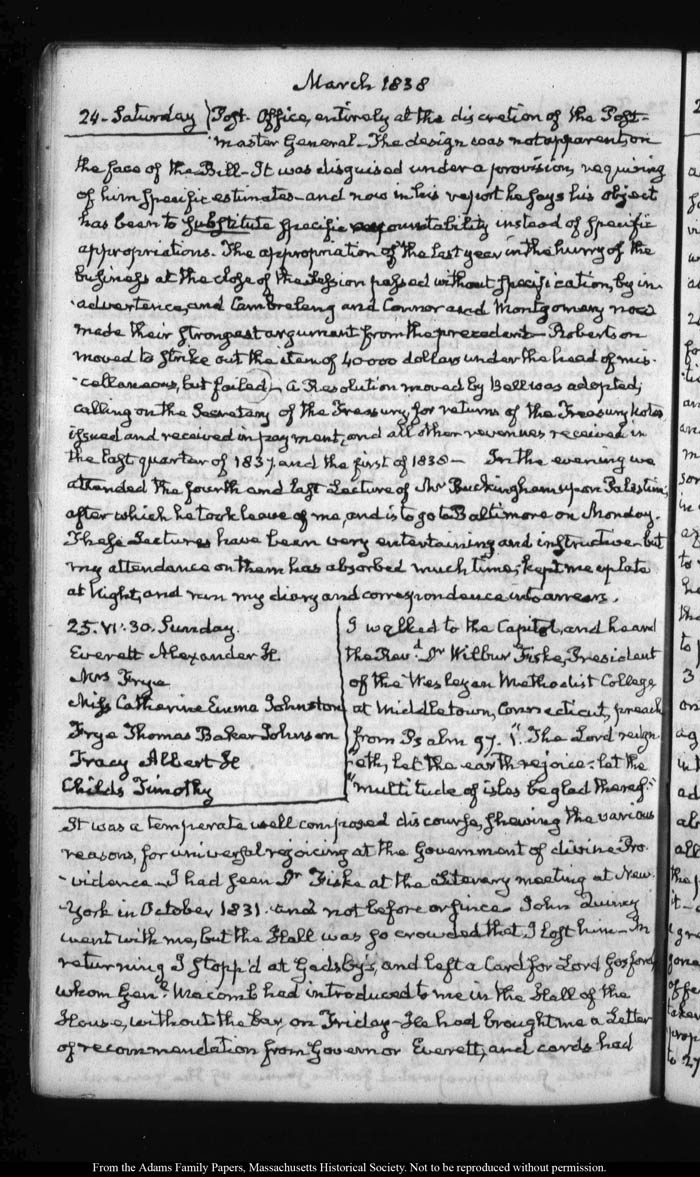 March 1838
24. Saturday) Post-Office, entirely at the discretion of the Post-
master General. The design was not apparent on
the face of the Bill. It was disguised under a provision, requiring
of him specific estimates and now in his report he says his object
has been to substitute specific accountability instead of specific
appropriations. The appropriation of the last year in the hurry of the
business at the close of the Session passed without specification, by in-
-advertence, and Cambreleng and Connor and Montgomery now
made their strongest argument from the precedent. Robertson
moved to strike out the item of 40000 dollars under the head of mis-
-cellaneous, but failed. A Resolution moved by Bell was adopted,
calling on the Secretary of the Treasury, for returns of the Treasury Notes
issued and received in payment, and all other revenues received in
the last quarter of 1837. and the first of 1838 — In the evening we
attended the fourth and last Lecture of Mr Buckingham upon Palestine;
after which he took leave of me, and is to go to Baltimore on Monday.
These Lectures have been very entertaining and instructive but
my attendance on them has absorbed much time, kept me up late
at Night, and run my diary and correspondence into arrears.
25. VI:30. Sunday.
Everett Alexander H.
Mrs Frye
Miss Catharine Emma Johnston
Frye Thomas Baker Johnson
Tracy Albert H
Childs Timothy
I walked to the Capitol, and heard
the Revd. Dr Wilbur Fiske, President
of the Wesleyan Methodist College
at Middletown, Connecticut, preach
from Psalm 97. 1. "The Lord reign-
"eth, let the earth rejoice: let the
"multitude of isles be glad thereof."
It was a temperate well composed discourse, shewing the various
reasons, for universal rejoicing at the Government of divine Pro-
-vidence. I had seen Dr Fiske at the Literary meeting at New-
-York in October 1831. and not before or since. John Quincy
went with me, but the Hall was so crowded that I lost him. In
returning I stopp'd at Gadsby's, and left a Card for Lord Gosford,
whom Genl. Macomb had introduced to me in the Hall of the
House, without the bar, on Friday. He had brought me a Letter
of recommendation from Governor Everett, and cards had
From the Adams Family Papers, Massachusetts Historical Society. Not to be reproduced without permission.